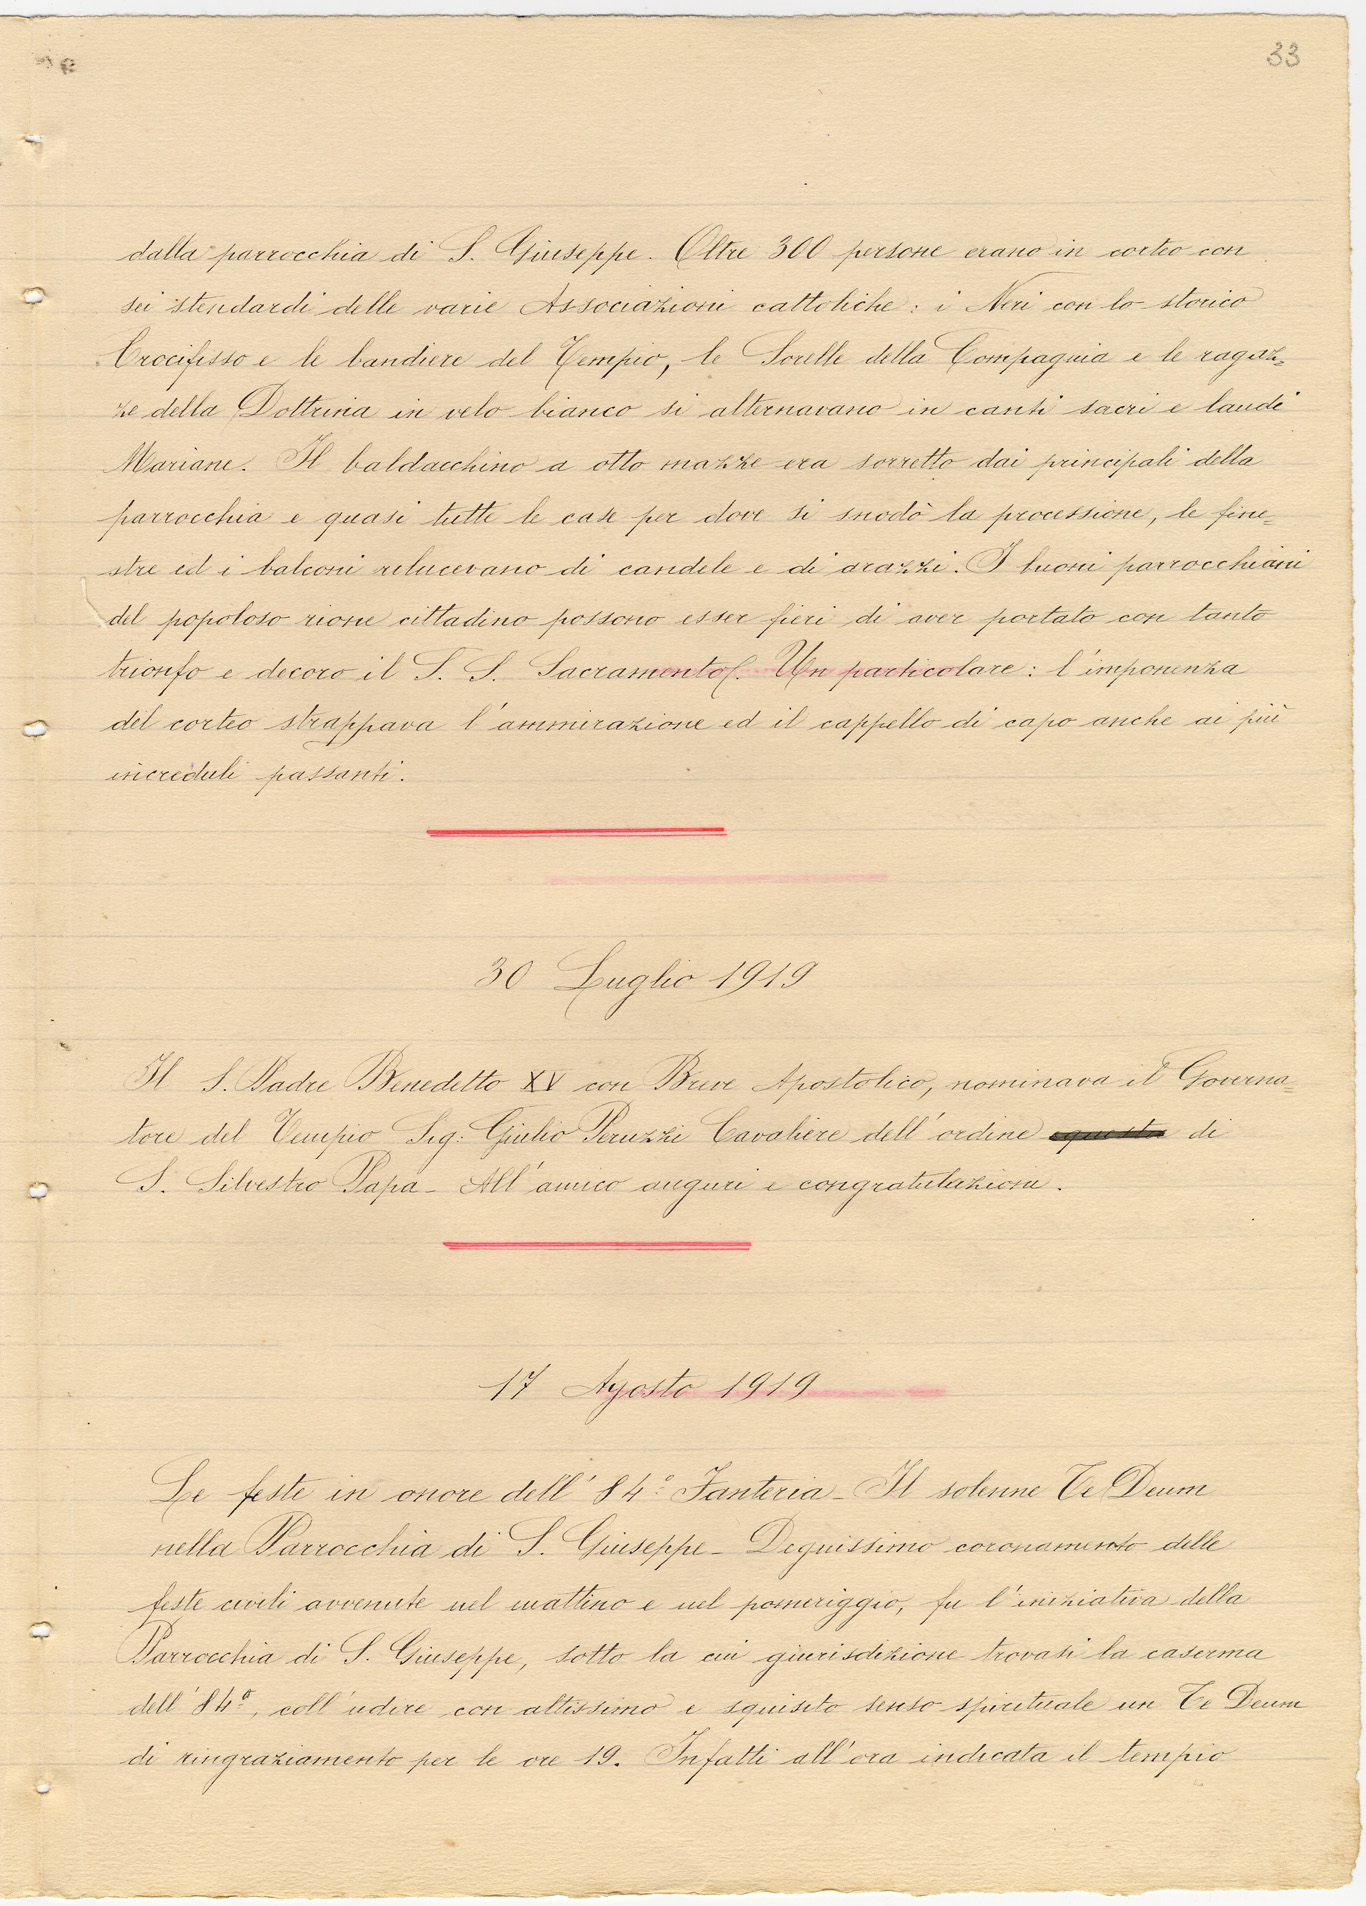 33
dalla parrocchia di S. Giuseppe. Oltre 300 persone erano in corteo con
sei stendardi delle varie Associazioni cattoliche: i Neri con lo storico
Crocifisso e le bandiere del Tempio, le Sorelle della Compagnia e le ragaz=
ze della Dottrina in velo bianco si alternavano in canti sacri e laudi
Mariane. Il baldacchino a otto mazze era sorretto dai principali della
parrocchia e quasi tutte le case per dove si snodò la processione, le fine=
stre ed i balconi rilucevano di candele e di arazzi. I buoni parrocchiani
del popoloso rione cittadino possono esser fieri di aver portato con tanto
trionfo e decoro il S. S. Sacramento. Un particolare: l'imponenza
del corteo strappava l'ammirazione ed il cappello di capo anche ai più
increduli passanti.
30 Luglio 1919
Il S. Padre Benedetto XV con Breve Apostolico, nominava il Governa=
tore del Tempio Sig: Giulio Peruzzi Cavaliere dell'ordine di
S. Silvestro Papa - All'amico auguri e congratulazioni.
17 Agosto 1919
Le feste in onore dell'84° Fanteria - Il solenne Te Deum
nella Parrocchia di S. Giuseppe - Degnissimo coronamento delle
feste civili avvenute nel mattino e nel pomeriggio, fu l'iniziativa della
Parrocchia di S. Giuseppe, sotto la cui giurisdizione trovasi la caserma
dell'84°, coll'udire con altissimo e squisito senso spirituale un Te Deum
di ringraziamento per le ore 19. Infatti all'ora indicata il tempio